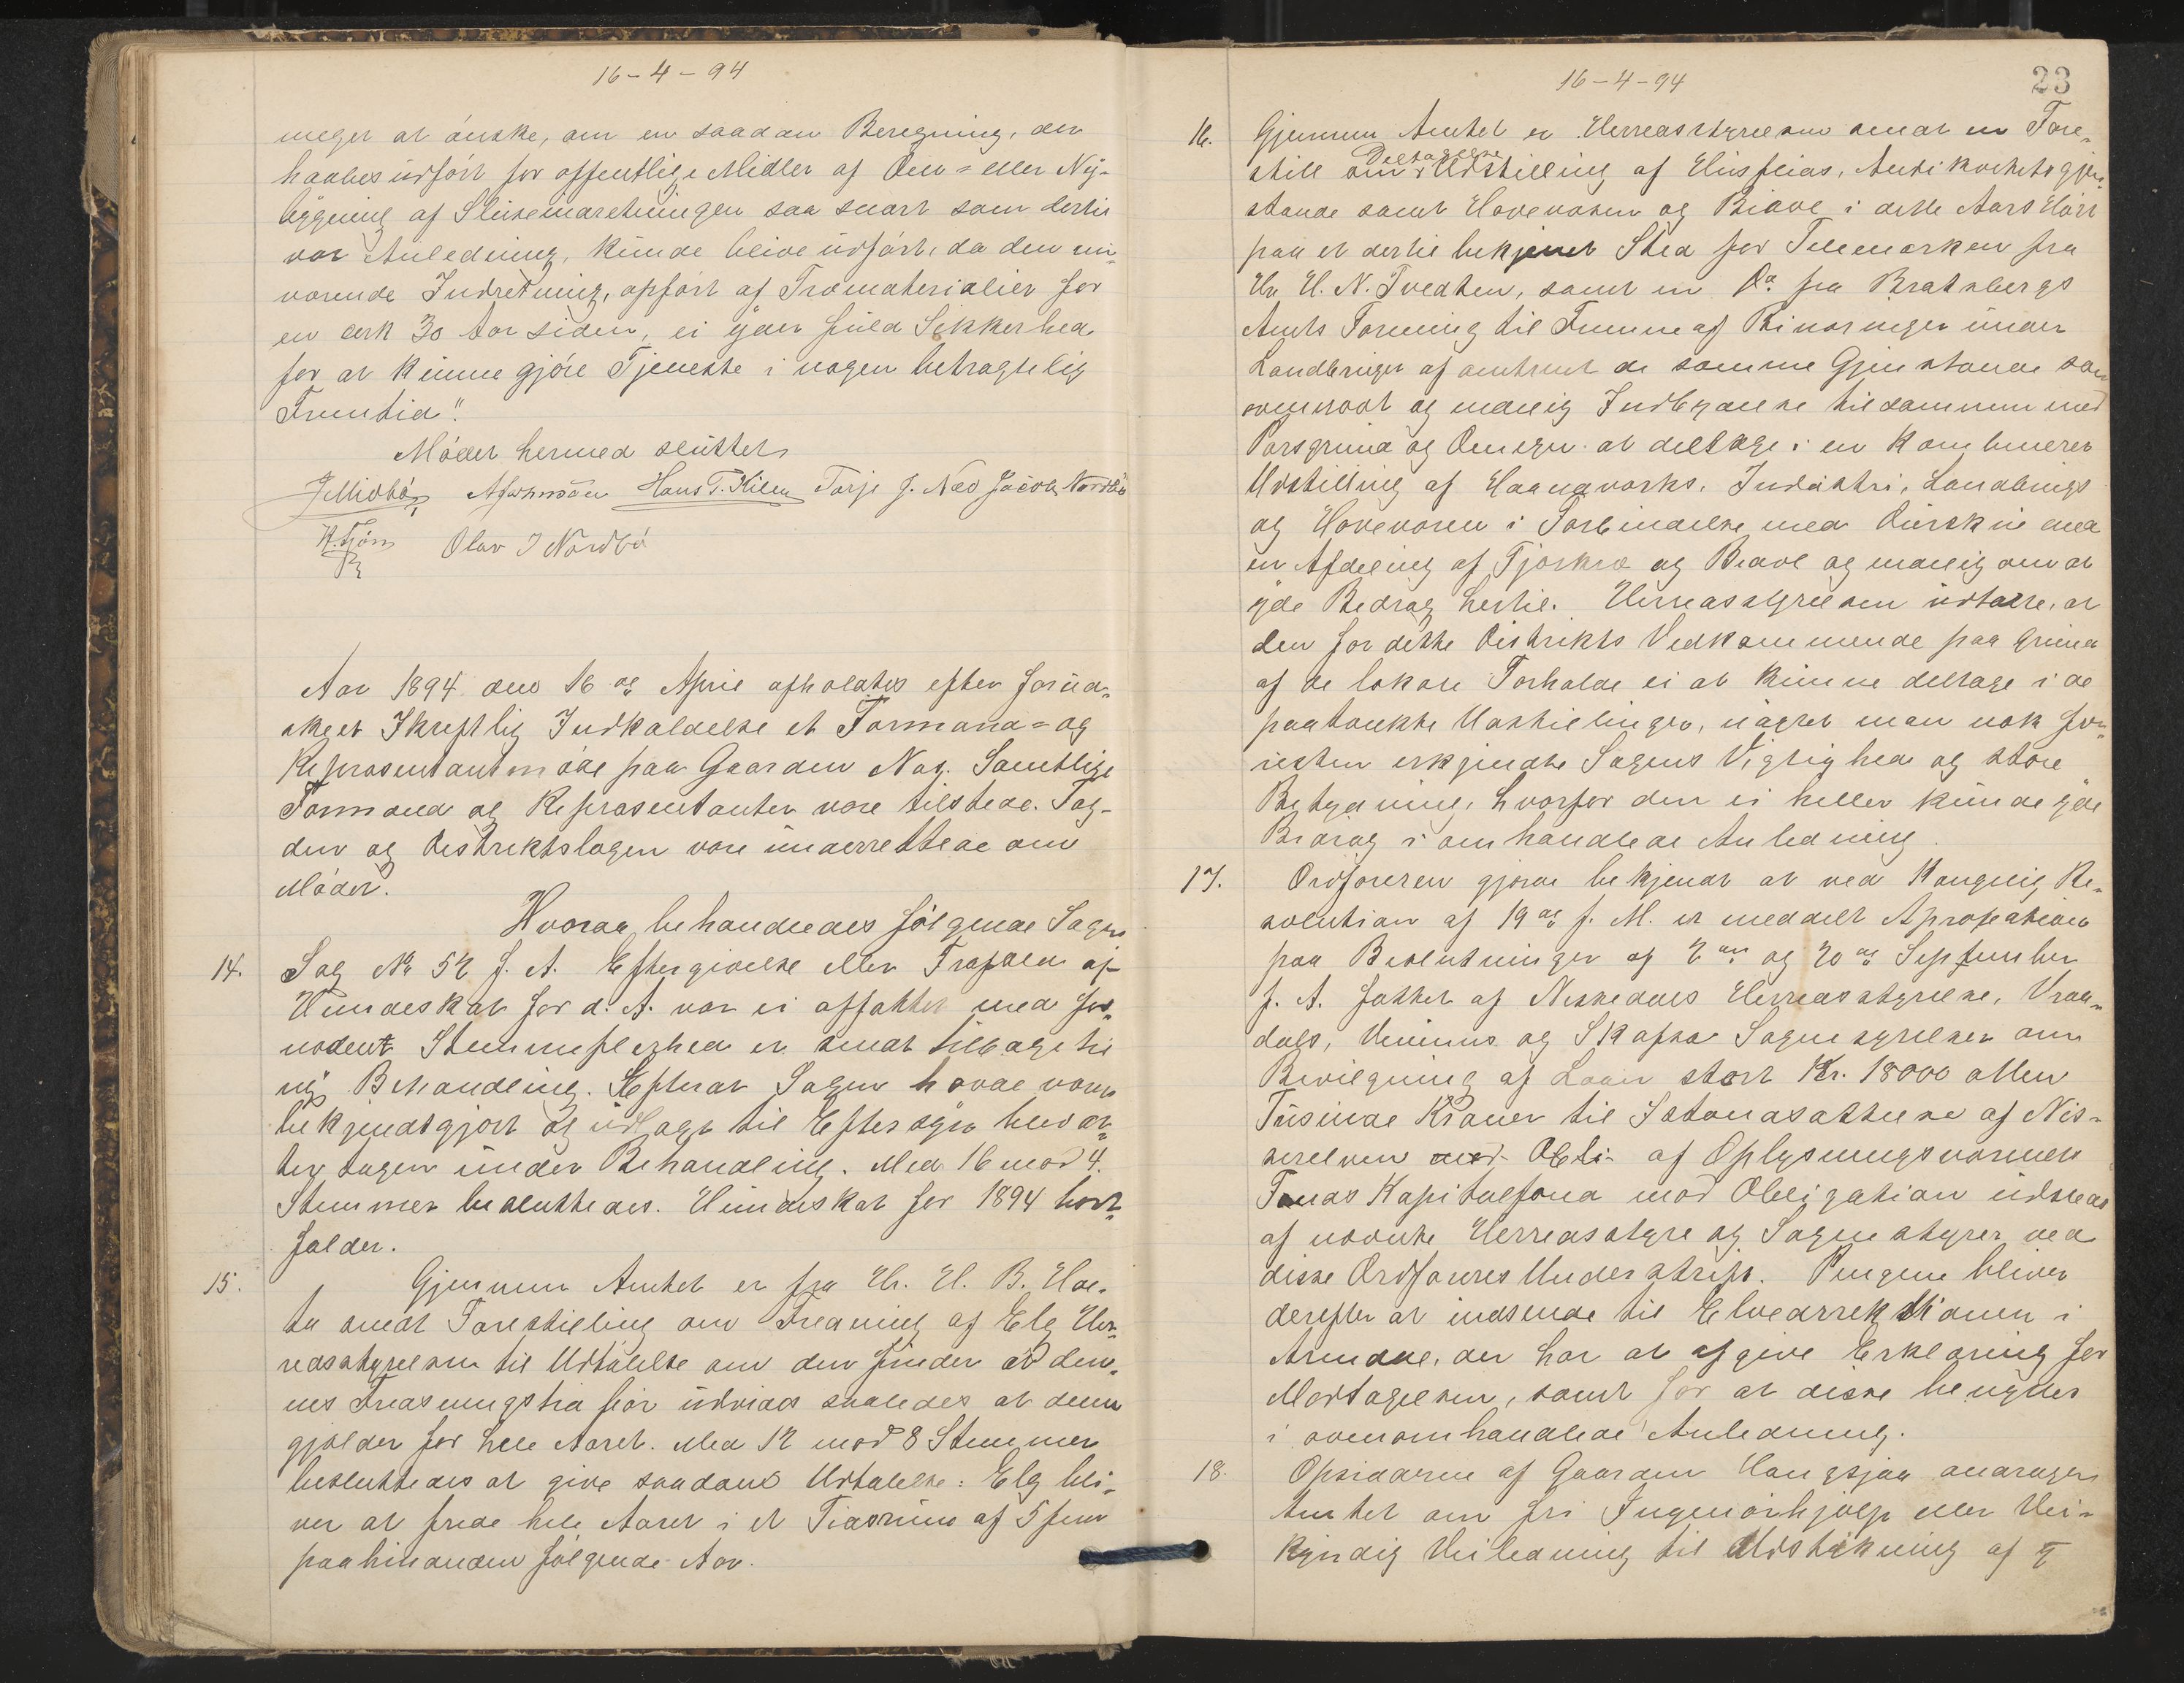 16-4-94
meget at ønske, om en saadan Beregning, der
haabes udført for offentlige Midler af Om- eller Ny-
bygning af Sluseindretningen saa snart som dertil
var Anledning, kunde blive udført, da den nu-
værende Indretning, opført af Træmaterialier for
en cirk 30 Aar siden, ei yder fuld Sikkerhed
for at kunne gjøre Tjeneste i nogen betragtelig
Fremtid".
Mødet hermed sluttet
J Midbø Hans T. Kilen Tarje J. Næs Jacob Nordbø
K. Tjøn Olav J Nordbø
Aar 1894 den 16de April afholdtes efter forud-
skeet Skriftlig Indkaldelse et Formand- og
Repræsentantmøde paa Gaarden Nag. Samtlige
Formænd og Repræsentanter vare tilstede. Fog-
den og Distriktslægen vare underrettede om
Mødet.
Hvorda behandledes følgende Sager
14. Sag No 52 f. A. Eftergivelse eller Frafald af
Hundeskat for d. A. var ei affattet med for-
nødent Stemmeflerhed er sendt tilbage til
ny Behandling. Efterat Sagen havde været
bekjendtgjort og udlagt til Eftersyn blev at-
ter tagen under Behandling. Med 16 mod 4
Stemmer besluttedes. Hundeskat for 1894 bort-
falder.
15. Gjennem Amtet er fra Hr. H. B. Hae-
ta sendt Forestilling om Fredning af Elg Her-
redsstyrelsen til Udtalelse om den finder at den-
nes Fredningstid bør udvides saaledes at den
gjælder for hele Aaret. Med 12 mod 8 Stemmer
besluttedes at give saadan Udtalelse: Elg bli-
ver at frede hele Aaret i et Tidsrum af 5 fem
paahinanden følgende Aar.
16-4-94 23
16. Gjennem Amtet er Herredsstyrelsen sendt en Fore-
Deltagelse
still om i Udstilling af Husflids, Antikvitetsgjen-
stande samt Havevæsen og Biavl i dette Aars Høst
paa et dertil bekjemt Sted for Telemarken fra
Hr H. N. Tvedten, samt en Do fra Bratsbergs
Amts Forening til Fremme af Binæringer under
Landbruget af omtrent de samme Gjenstande som
ovennævt og endelig Indbydelse til sammen med
Porsgrund og Omegn at deltage i en kombineret
Udstilling af Haandværks, Industri, Landbrugs
og Havevæsen i Forbindelse med Dirskue med
en Afdeling af Fjærkræ og Biavl og endelig om at
yde Bidrag hertil. Herredsstyrelsen udtalte, at
den for dette Distrikts Vedkommende paa Grund
af de lokale Forholde ei at kunne deltage i de
paatænkte Udstillinger, uagtet man nok for-
resten erkjendte Sagens Vigtighed og store
Betydning, hvorfor den ei heller kunde yde
Bidrag i omhandlede Anledning.
17. Ordføreren gjorde bekjendt at ved Kongelig Re-
solution af 19de f. M. er meddelt Aprobation
paa Beslutninger af 2den og 20de September
f. A. fattet af Nissedals Herredsstyrelse, Vraa-
dals, Veums og Skafsaa Sognestyrelser om
Bevilgning af Laan stort Kr. 18000 atten
Tusinde Kroner til Istandsættelse af Nis-
serelven mod Obli- af Oplysningsvæsnets
Fonds Kapitalfond mod Obligation udstedt
af nævnte Herredsstyre og Sognestyrer ved
disse Ordføreres Underskrift. Pengene bliver
derefter at indsende til Elvedirektionen i
Arendal, der har at afgive Erklæring for
Modtagelsen, samt for at disse benyttes
i ovenomhandlede Anledning.
18. Opsidderne af Gaarden Haugsjaa andrager
Amtet om fri Ingeniørhjælp eller Vei-
kyndig Veiledning til Udstikning af